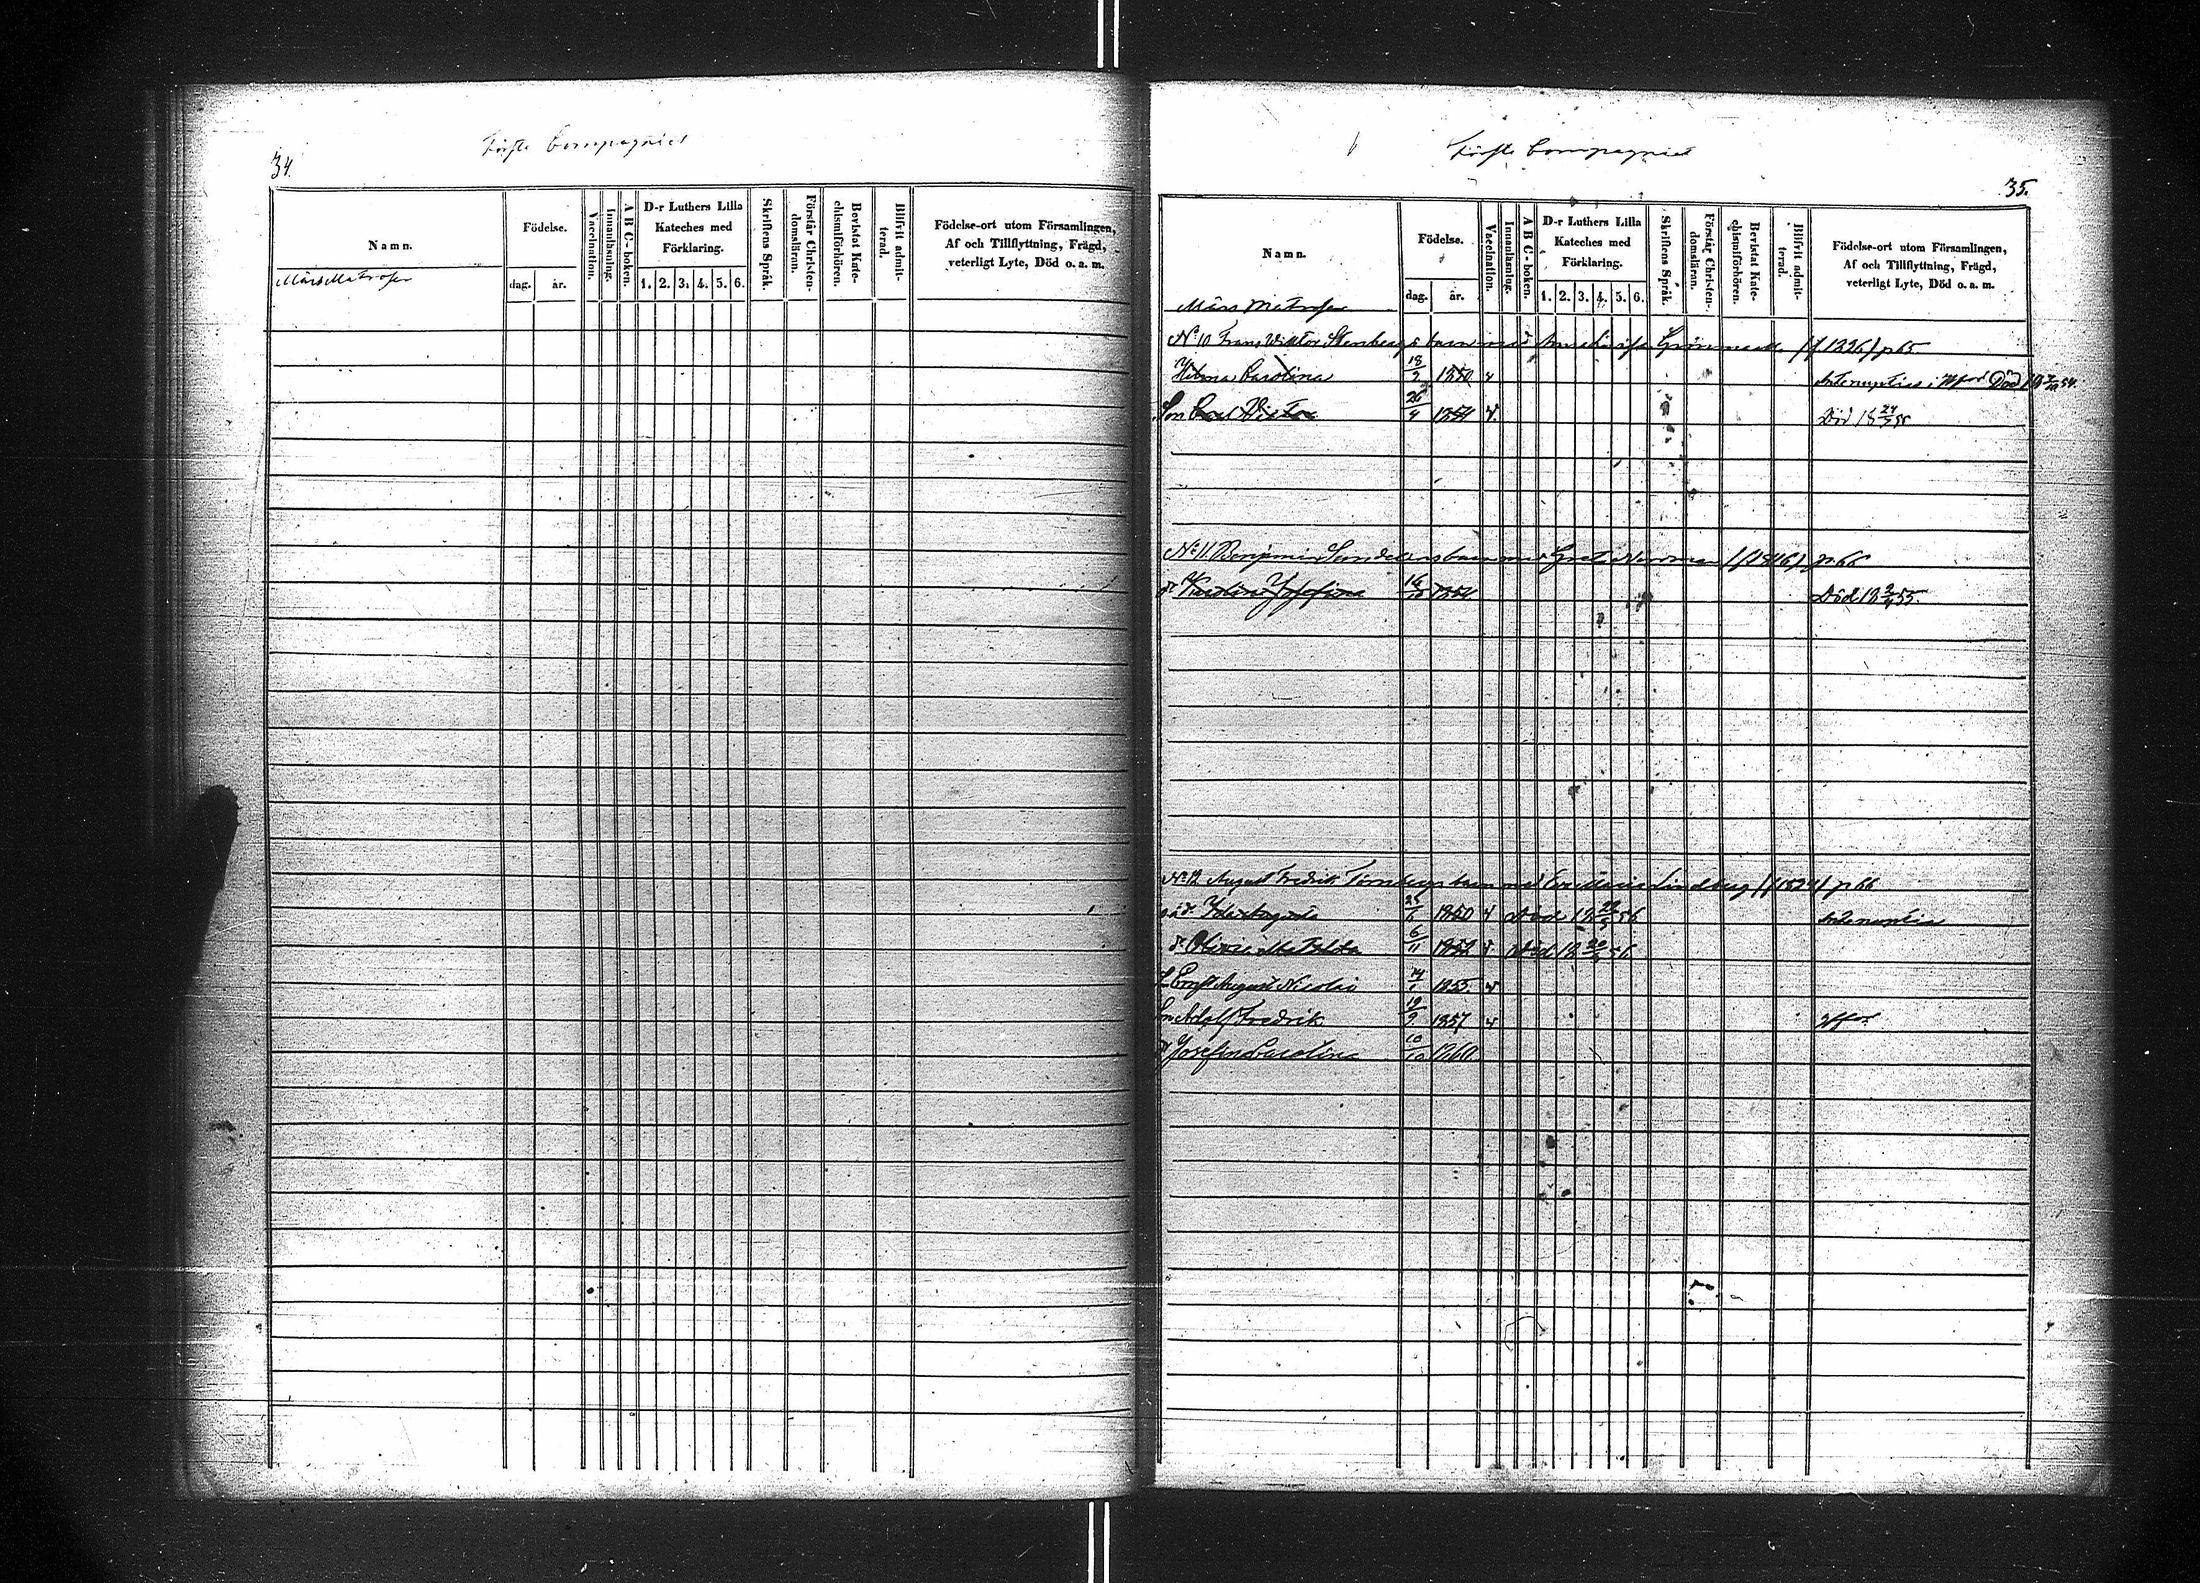 34.
Förste Compagniet
Namn.
Födelse.
dag.
år.
Vaccination.
Innanläsning.
A B C-boken.
D-r Luthers Lilla Kateches med Förklaring.
1. 2. 3. 4. 5. 6.
Skriftens Språk.
Förstår Christendomsläran.
Bevistat Katechismiförhören.
Blifvit admitterad.
Födelse-ort utom Församlingen,
Af och Tillflyttning, Frägd,
veterligt Lyte, Död o. a. m.
Märs Matroser
Förste Compagniet
35.
Namn.
Födelse.
dag.
år.
Vaccination.
Innanläsning.
A B C-boken.
D-r Luthers Lilla Kateches med Förklaring.
1. 2. 3. 4. 5. 6.
Skriftens Språk.
Förstår Christendomsläran.
Bevistat Katechismiförhören.
Blifvit admitterad.
Födelse-ort utom Församlingen,
Af och Tillflyttning, Frägd,
veterligt Lyte, Död o. a. m.
Märs Matroser
No 10 Frans Viktor Stenbergs barn med (1226) p 65
Hilma Carolina 18/9 1850 v Död
Son Carl Victor 26/4 1854 v. Död
No 11 Benjamin barn med Greta (1846) p 66
dr Karolina Josefina 16/10 1854 Död 18 2/4 55.
No 12 August Fredrik Törnbergs barn med Eva Maria Lindberg (1824) p 66
dr Ida Augusta 25/6 1850 v Död
dr Olivia Mathilda 6/11 1852 v Död
S Ernst August Nicolai 14/1 1855. v
Son Adolf Fredrik 19/9 1857 v
dr Josefina Carolina 10/10 1860